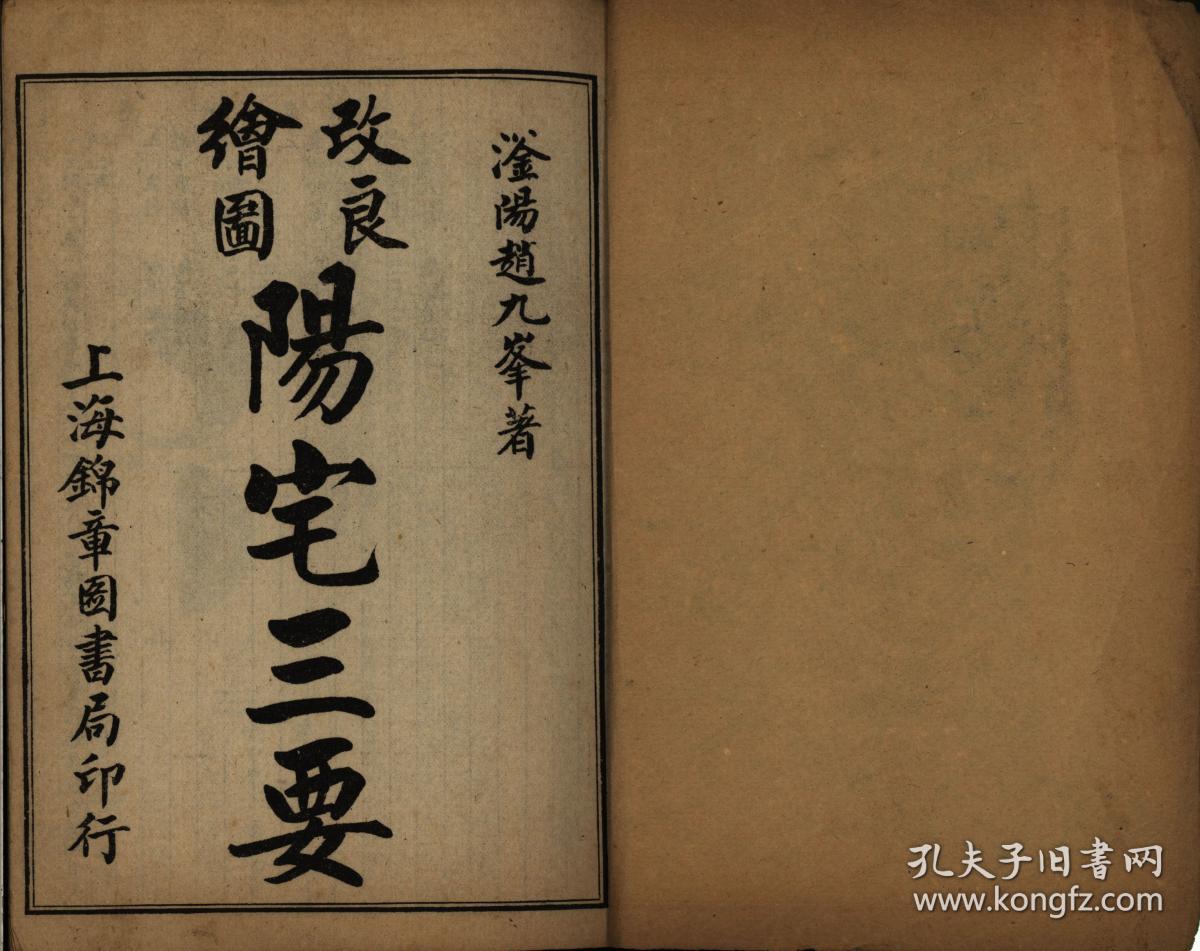 滏陽趙九峯著
改良
繪圖
陽宅三要
上海錦章圖書局印行
孔夫子旧书网
www.kongfz.com